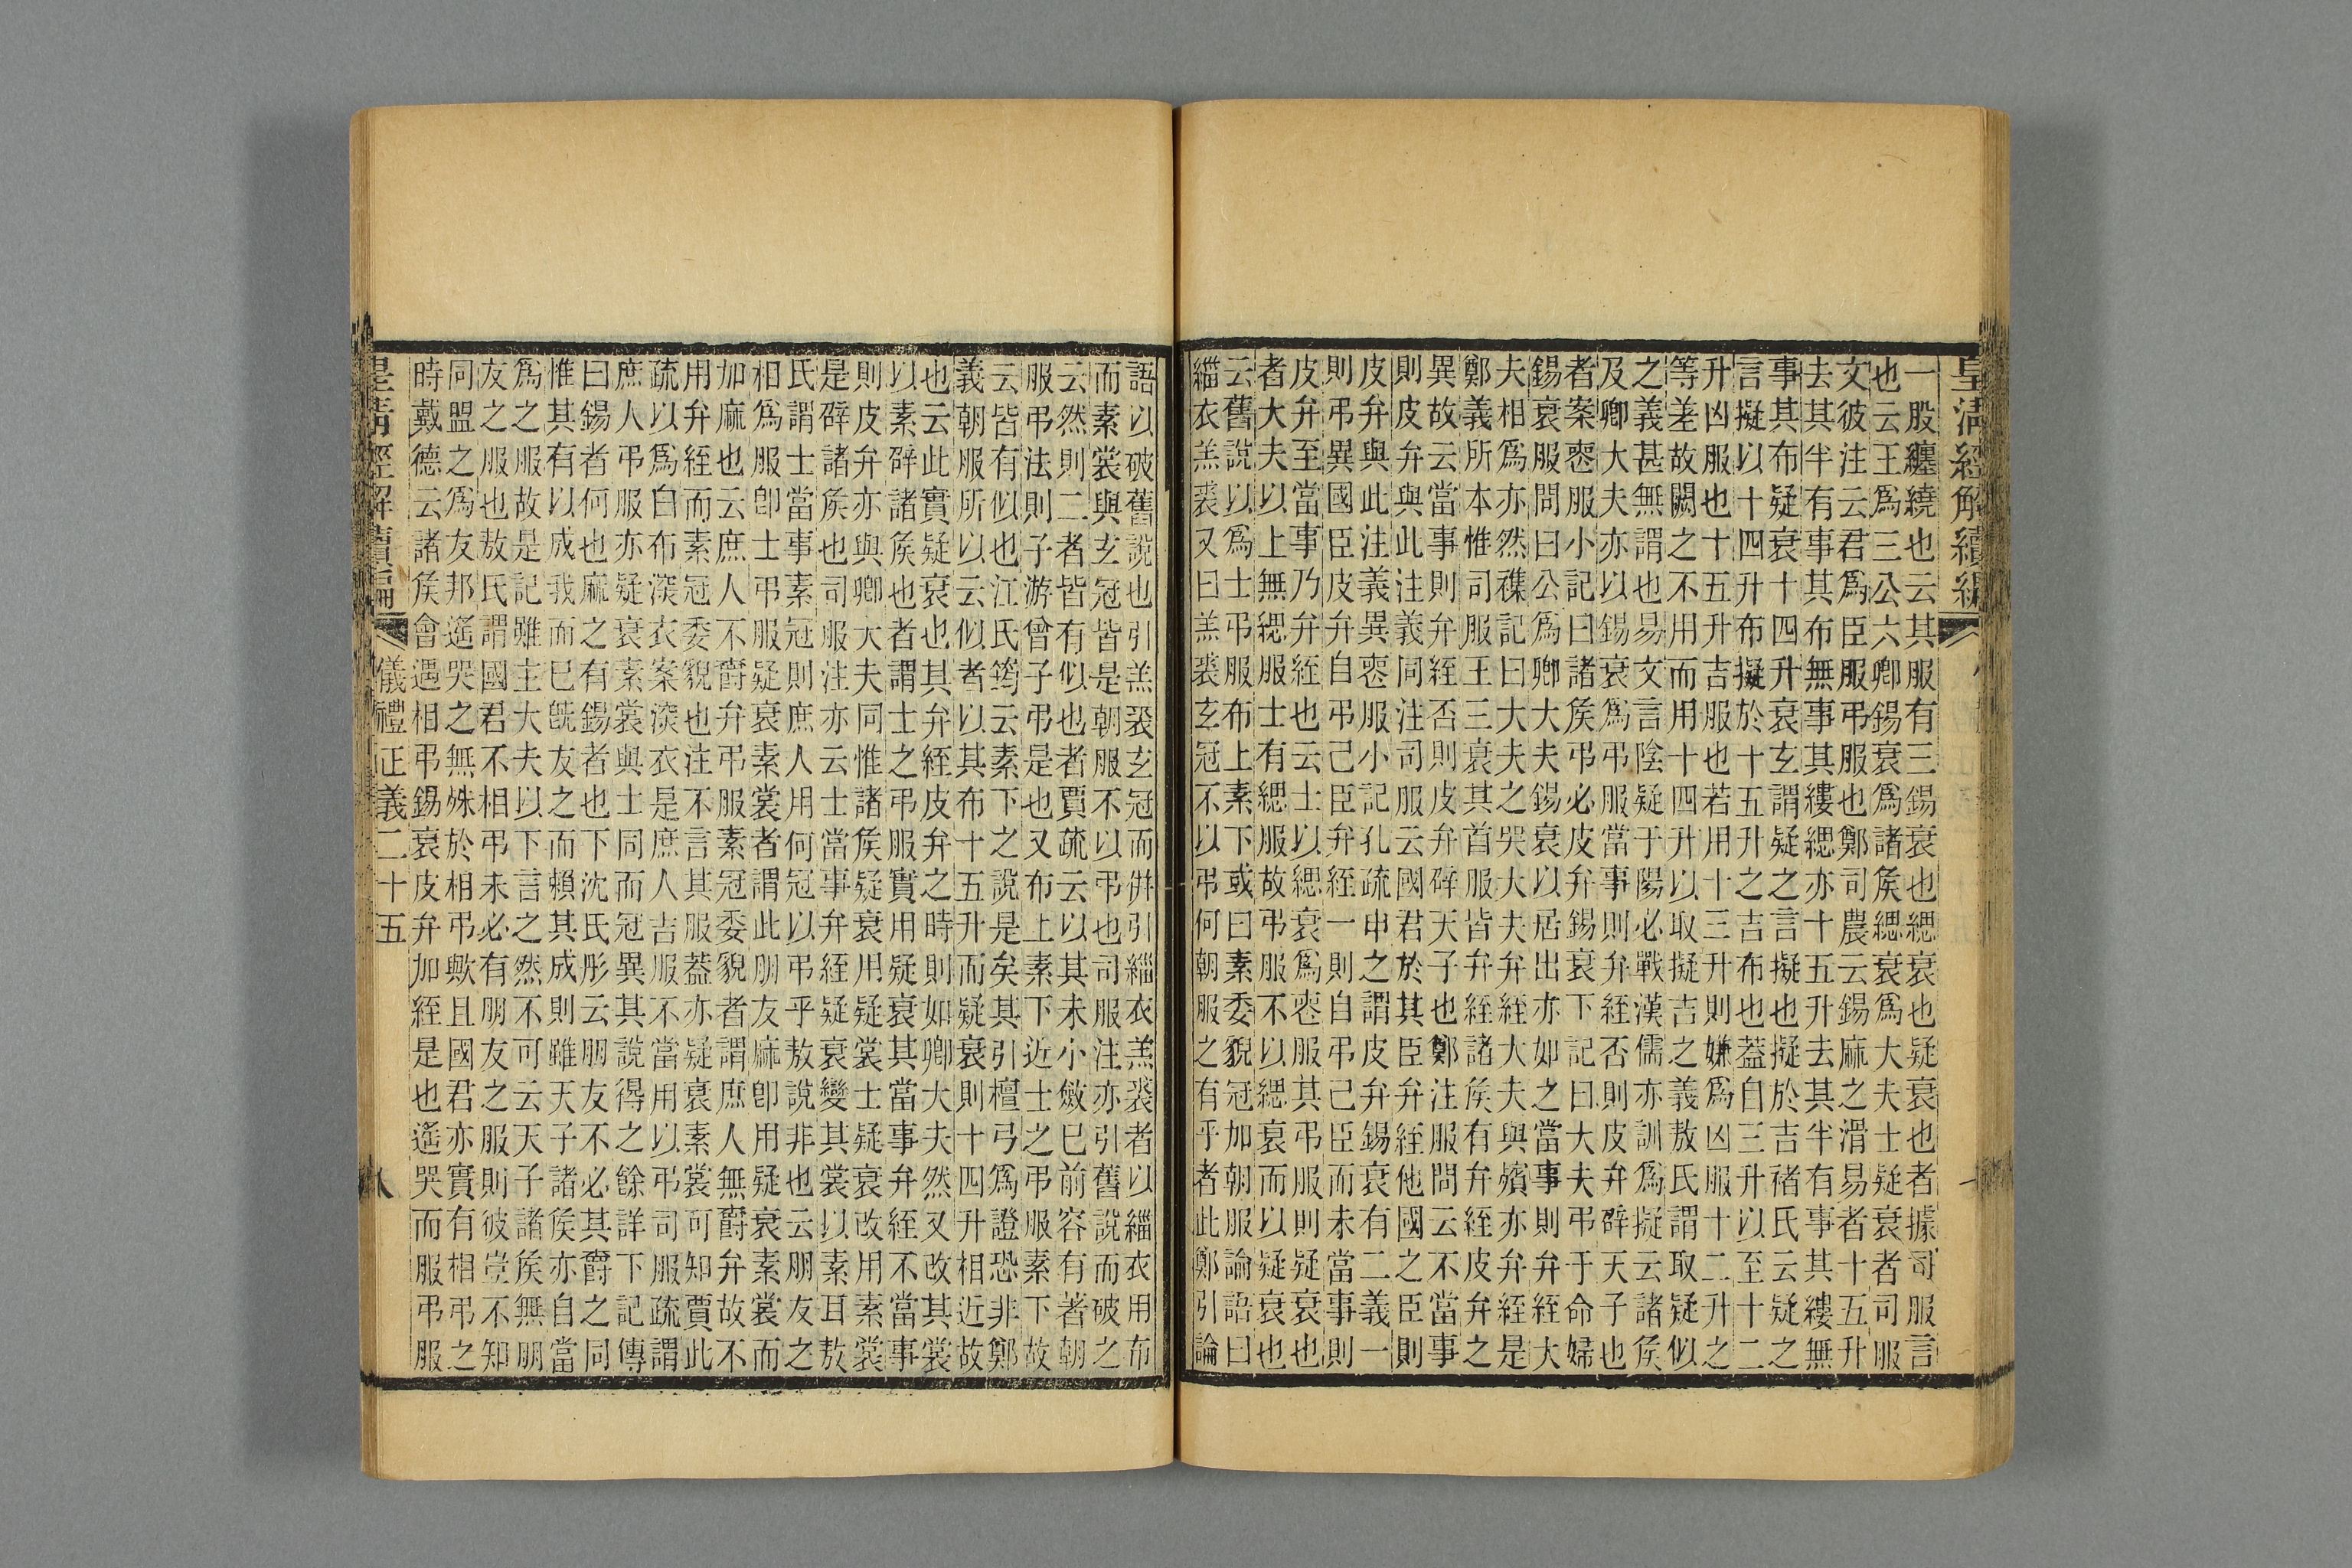 皇清經解續編
一股纏繞也云其服有三錫衰也緦衰也疑衰也者據司服言
也云王爲三公六卿錫衰爲諸矦緦衰爲大夫士疑衰者司服
文彼注云君爲臣服弔服也鄭司農云錫麻之滑易者十五升
去其半有事其布無事其縷緦亦十五升去其半有事其縷無
事其布疑衰十四升衰玄謂疑之言擬也擬於吉褚氏云疑之
言擬以十四升布擬於十五升之吉布也葢自三升以至十二
升凶服也十五升吉服也若用十三升則嫌爲凶服十二升之
等差故闕之不用而用十四升以取擬吉之義敖氏謂取疑似
之義甚無謂也易文言陰疑于陽必戰漢儒亦訓爲擬云諸矦
及卿大夫亦以錫衰爲弔服當事則弁絰否則皮弁辟天子也
者案喪服小記曰諸矦弔必皮弁錫衰下記曰大夫弔于命婦
錫衰服問曰公爲卿大夫錫衰以居出亦如之當事則弁絰大
夫相爲亦然襍記曰大夫之哭大夫弁絰大夫與殯亦弁絰是
鄭義所本惟司服王三衰其首服皆弁絰諸矦有弁絰皮弁之
異故云當事則弁絰否則皮弁辟天子也鄭注服問云不當事
則皮弁與此注義同注司服云國君於其臣弁絰他國之臣則
皮弁與此注義異喪服小記孔疏申之謂皮弁錫衰有二義一
則弔異國臣皮弁自弔己臣弁絰一則自弔己臣而未當事則
皮弁至當事乃弁絰也云士以緦衰爲喪服其弔服則疑衰也
者大夫以上無緦服士有緦服故弔服不以緦衰而以疑衰也
云舊說以爲士弔服布上素下或曰素委貌冠加朝服論語曰
緇衣羔裘又曰羔裘玄冠不以弔何朝服之有乎者此鄭引論
語以破舊說也引羔裘玄冠而倂引緇衣羔裘者以緇衣用布
而素裳與玄冠皆是朝服不以弔也司服注亦引舊說而破之
云然則二者皆有似也者賈疏云以其未小斂巳前容有著朝
服弔法則子游曾子弔是也又布上素下近士之弔服素下故
云皆有似也江氏筠云素下之說是矣其引檀弓爲證恐非鄭
義朝服所以云似者以其布十五升而疑衰則十四升相近故
也云此實疑衰也其弁絰皮弁之時則如卿大夫然又改其裳
以素辟諸矦也者謂士之弔服實用疑衰其當事弁絰不當事
則皮弁亦與卿大夫同惟諸矦疑衰用疑裳士疑衰改用素裳
是辟諸矦也司服注亦云士當事弁絰疑衰變其裳以素耳敖
氏謂士當事素冠則庶人用何冠以弔乎敖說非也云朋友之
相爲服卽士弔服疑衰素裳者謂此朋友麻卽用疑衰素裳而
加麻也云庶人不爵弁弔服素冠委貌者謂庶人無爵弁故不
用弁絰而素冠委貌也注不言其服葢亦疑衰素裳可知賈此
疏以爲白布深衣案深衣是庶人吉服不當用以弔司服疏謂
庶人弔服亦疑衰素裳與士同而冠異其說得之餘詳下記傳
曰錫者何也麻之有錫者也下沈氏彤云朋友不必其爵之同
惟其有以成我而巳旣友之而賴其成則雖天子諸矦亦自當
爲之服故是記雖主大夫以下言之然不可云天子諸矦無朋
友之服也敖氏謂國君不相弔未必有朋友之服則彼豈不知
同盟之爲友邦遙哭之無殊於相弔歟且國君亦實有相弔之
時戴德云諸矦會遇相弔錫衰皮弁加絰是也遙哭而服弔服
皇清經解續編 儀禮正義二十五 八